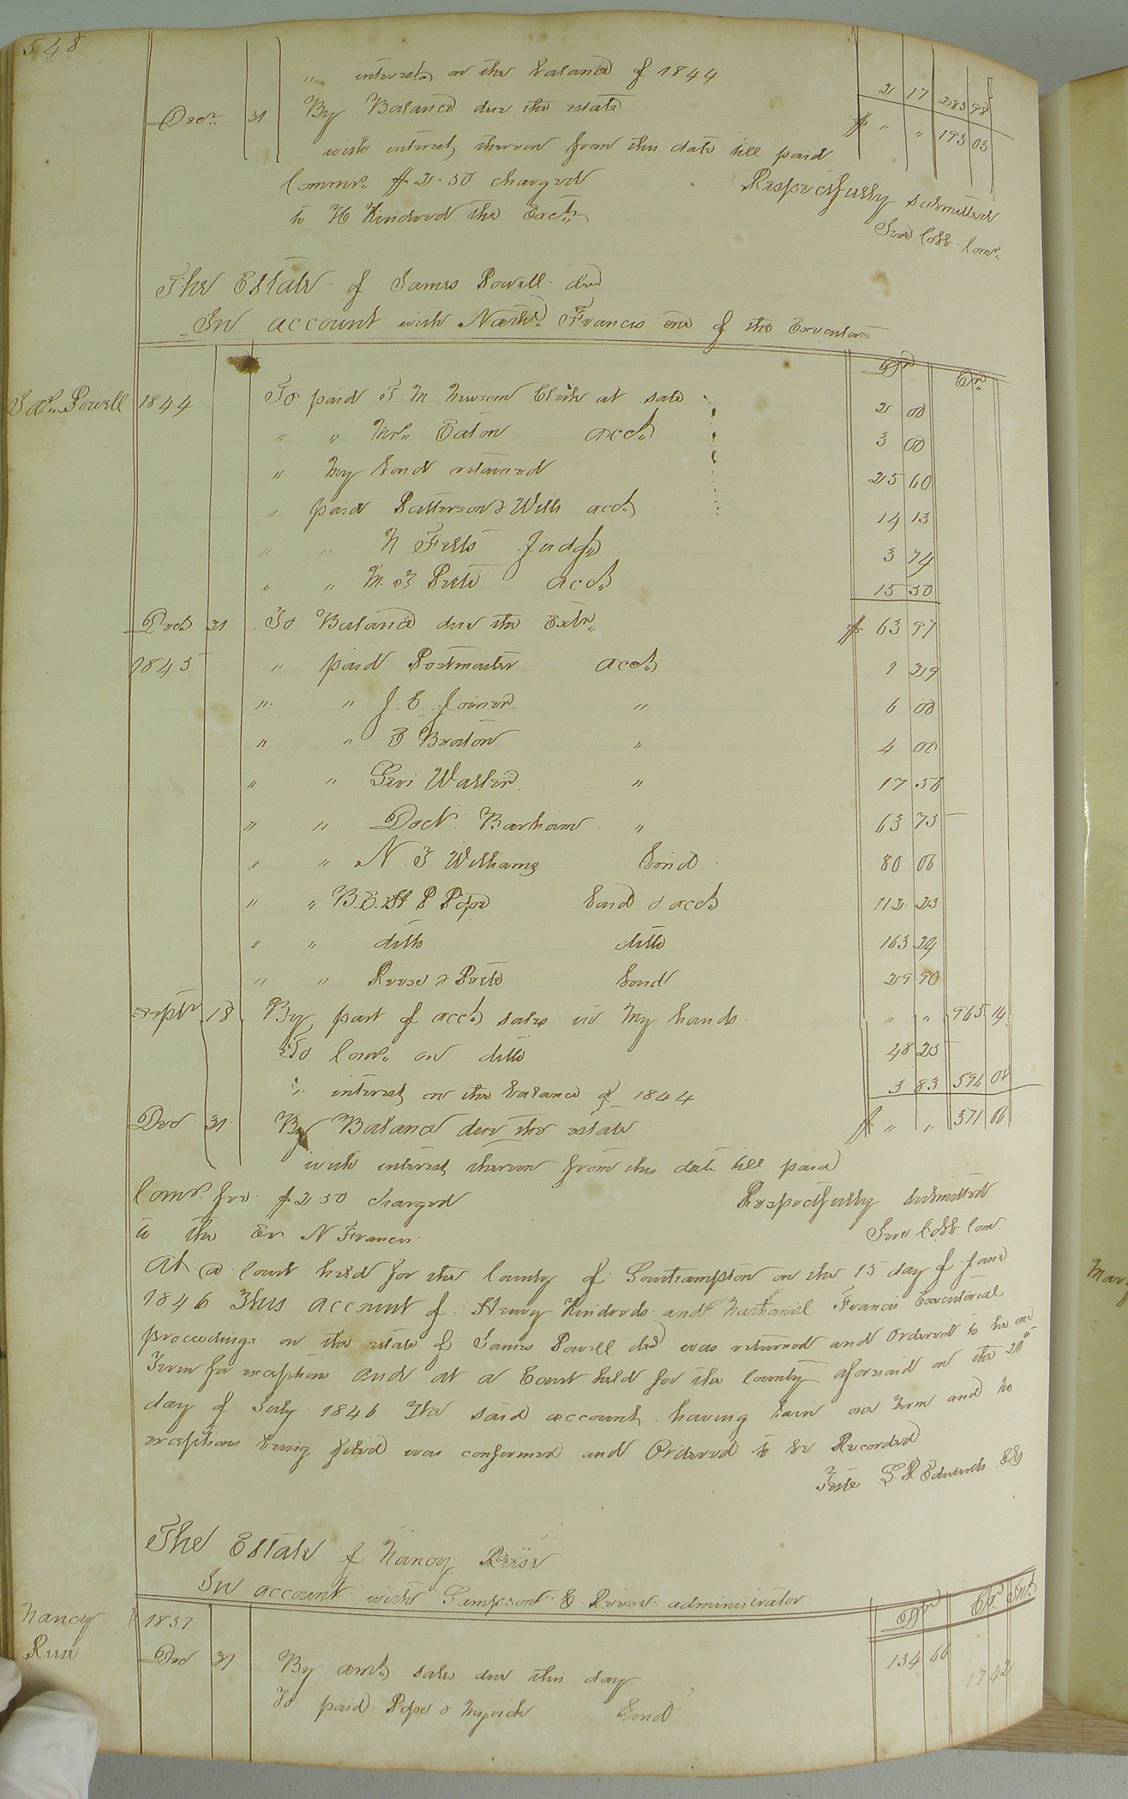 548
" interest on the balance of 1844 2 17 283 98
Decr. 31 By Balance due the estate $ " " 193 03
with interest thereon from this date till paid
Commr. $2.50 charged Respectfully submitted
to H Kindred the Exctr. Cobb Comr.
The Estate of James Powell decd
In account with Nathl. Francis one of the Executors
Dr. Cr.
Jas. Powell 1844 To paid T M Newsom Clerk at sale 2 00
" " Mrs. Eaton acct. 3 00
" My bond retained 25 60
" paid Patterson & Wills acct. 14 13
" " N Felts Judgt. 3 74
" " acct. 15 50
Dec. 31 To Balance due the Extr. $ 63 97
1845 " paid Postmaster acct. 1 29
" " J. E. Joiner " 6 00
" " E Braton " 4 00
" " Levi Waller " 17 56
" " Doct. Barham " 63 75
" " N T Williams bond 80 06
" " B. E. & H P Pope bond & acct 112 23
" " ditto ditto 163 29
" " Reese & Porte bond 29 90
Septr. 18 By part of acct. sales in my hands " " 965 14
To Comr. on ditto 48 25
" interest on the balance of 1844 3 83 594 08
Dec 31 By Balance due the estate $ " " 371 06
with interest thereon from this date till paid
Comr. fee $2.50 charged Respectfully submitted
to the Ex N Francis Cobb Com.
At a Court held for the County of Southampton on the 15 day of June
1846 This account of Henry Kindreds and Nathaniel Francis Executorial
proceedings on the estate of James Powell decd was returned and Ordered to lie one
Term for exceptions and at a Court held for the County aforesaid on the 20th
day of July 1846 The said account having lain one term and no
exceptions being filed was confirmed and Ordered to be Recorded
Teste L R Edwards Clk
The Estate of Nancy Reese
In account with Sampson E. Reese administrator
Dr. Cr. Int.
Nancy 1837
Reese Dec 31 By amt. sales due this day 134 66 17 42
To paid Pope & bond